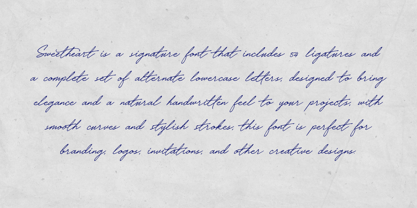 Sweetheart is a signature font that includes 50 ligatures and
a complete set of alternate lowercase letters, designed to bring
elegance and a natural handwritten feel to your projects, with
smooth curves and stylish strokes, this font is perfect for
branding, logos, invitations, and other creative designs